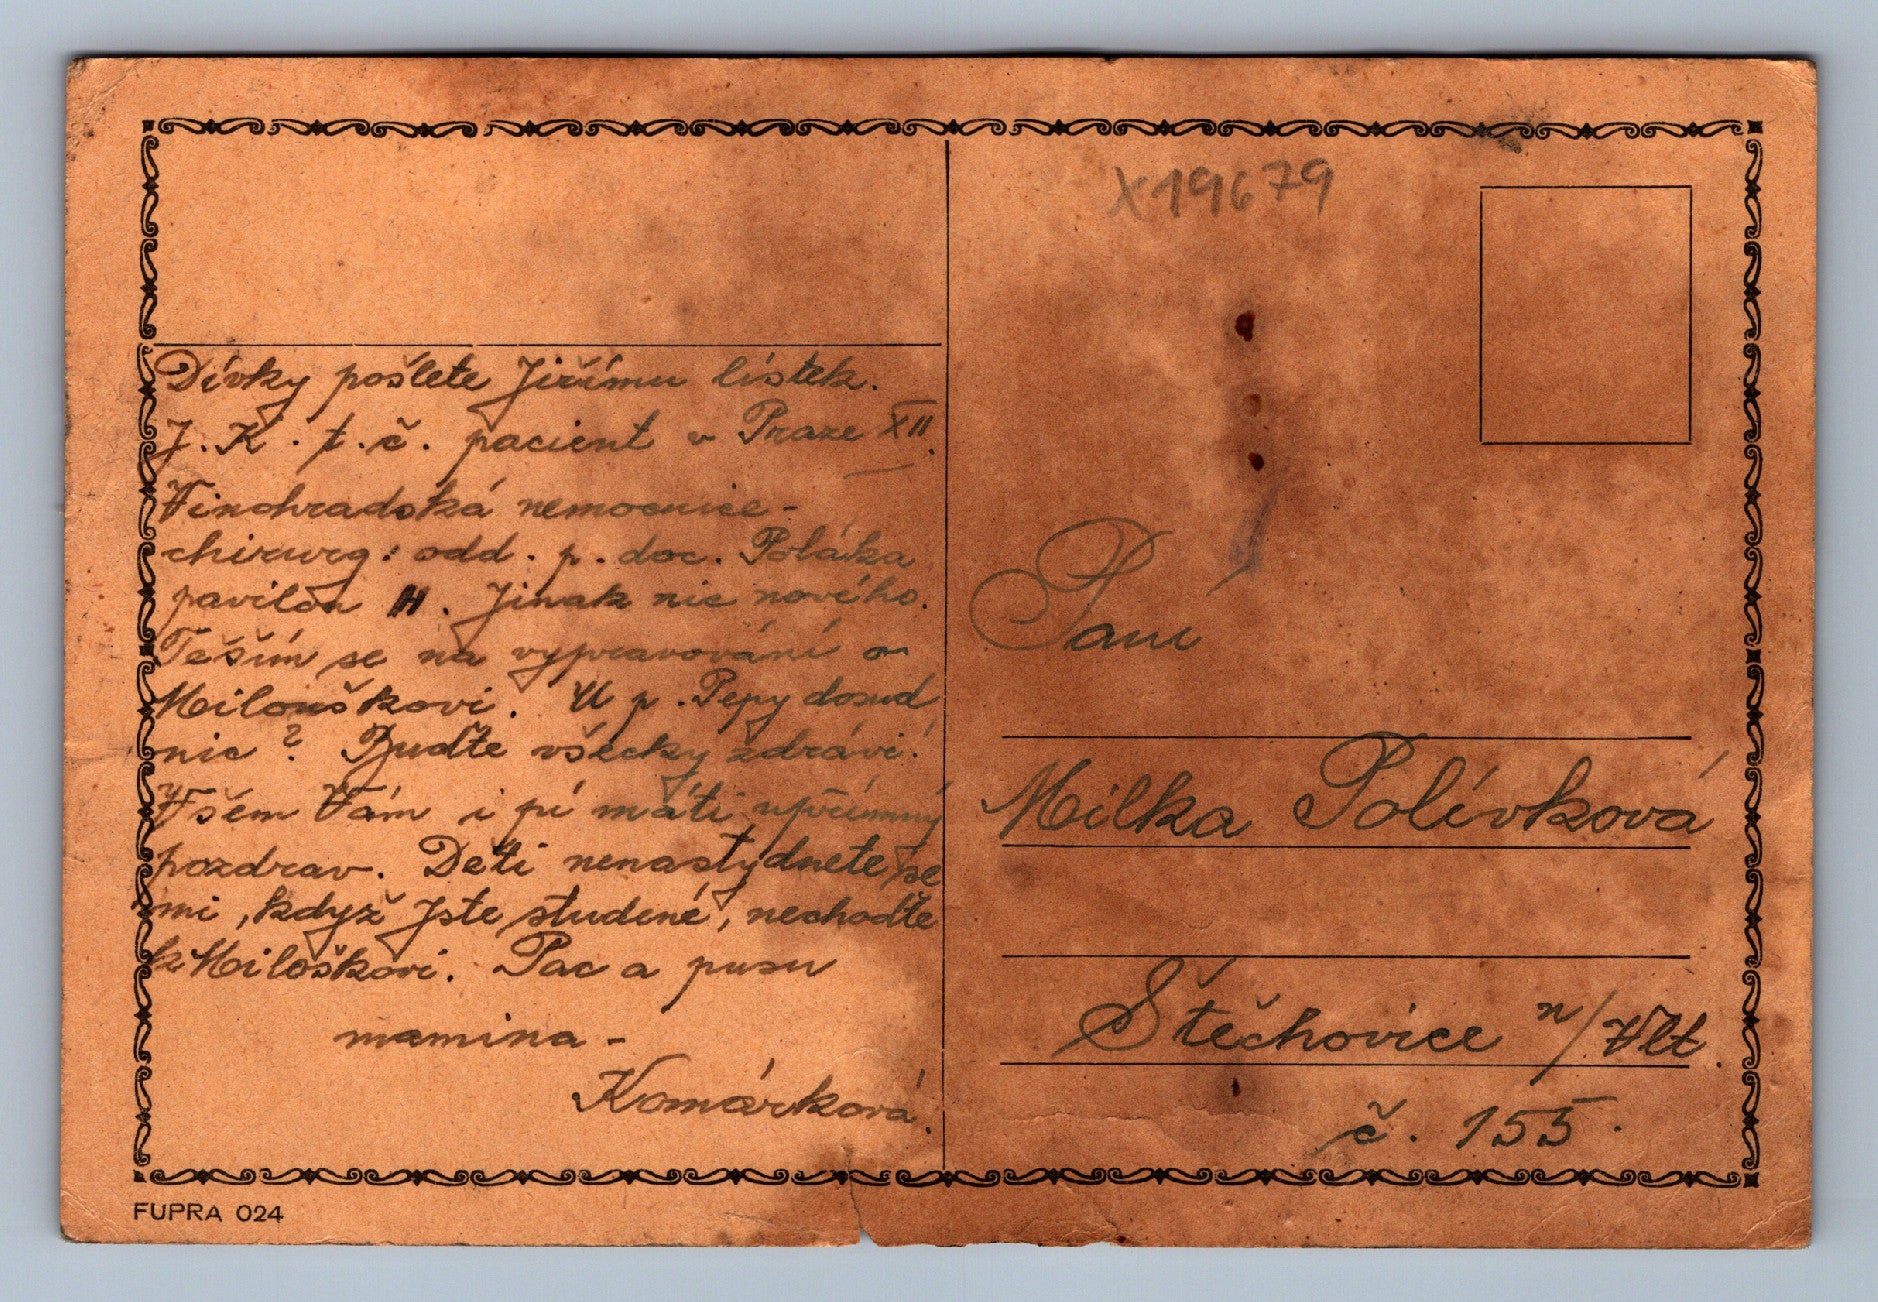 Dívky pošlete Jiřímu lístek.
J. K. t. č. pacient v Praze XII.
Vinohradská nemocnice -
chirurg. odd. p. doc. Poláka
pavilon H. Jinak nic nového.
Těším se na vypravování o
Milouškovi. U p. Pepy dosud
nic? Buďte všecky zdrávi!
Všem Vám i pí máti upřímný
pozdrav. Děti nenastydnete se
mi, když jste studené, nechoďte
k Miloškovi. Pac a pusu
mamina -
Komárková.
FUPRA 024
X19679
Paní
Milka Polívková
Štěchovice n/Vlt.
č. 155.